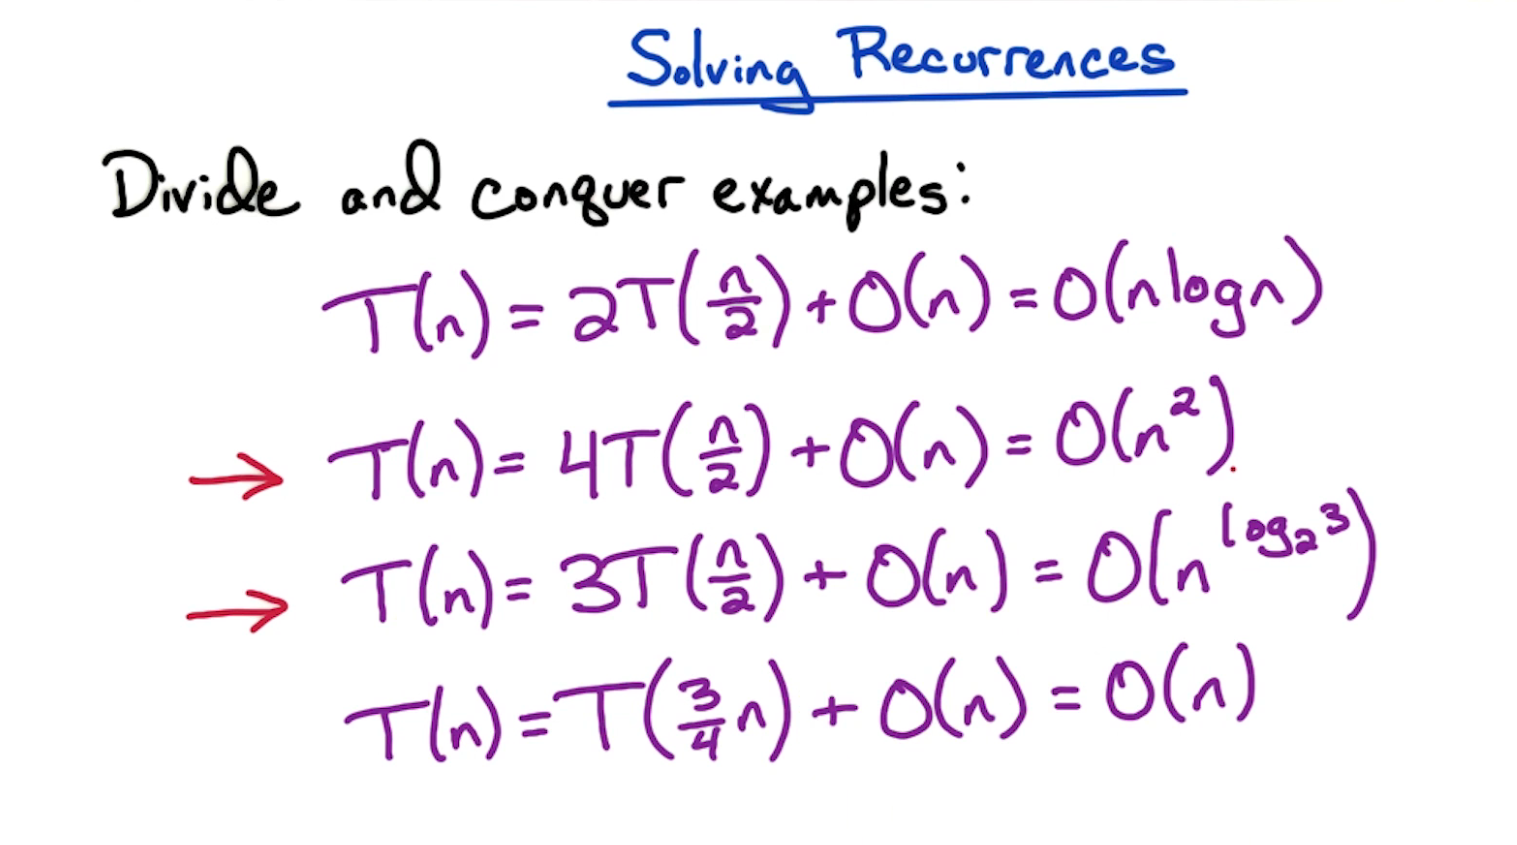 Solving Recurrences
Divide and conquer examples:
T(n) = 2T(n/2) + O(n) = O(n log n)
→ T(n) = 4T(n/2) + O(n) = O(n²)
→ T(n) = 3T(n/2) + O(n) = O(n^(log₂3))
T(n) = T(3/4 n) + O(n) = O(n)